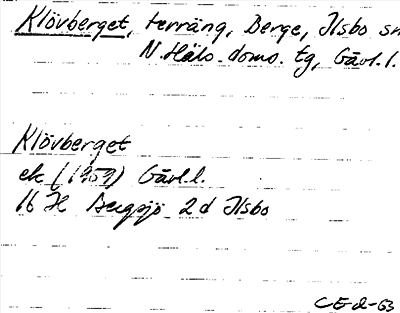 Klövberget, terräng, Berge, Ilsbo sn
N. Häls. doms. tg, Gävl. l.
Klövberget
ek (1959) Gävl. l.
16 H Bergsjö 2 d Ilsbo
CE-d-63